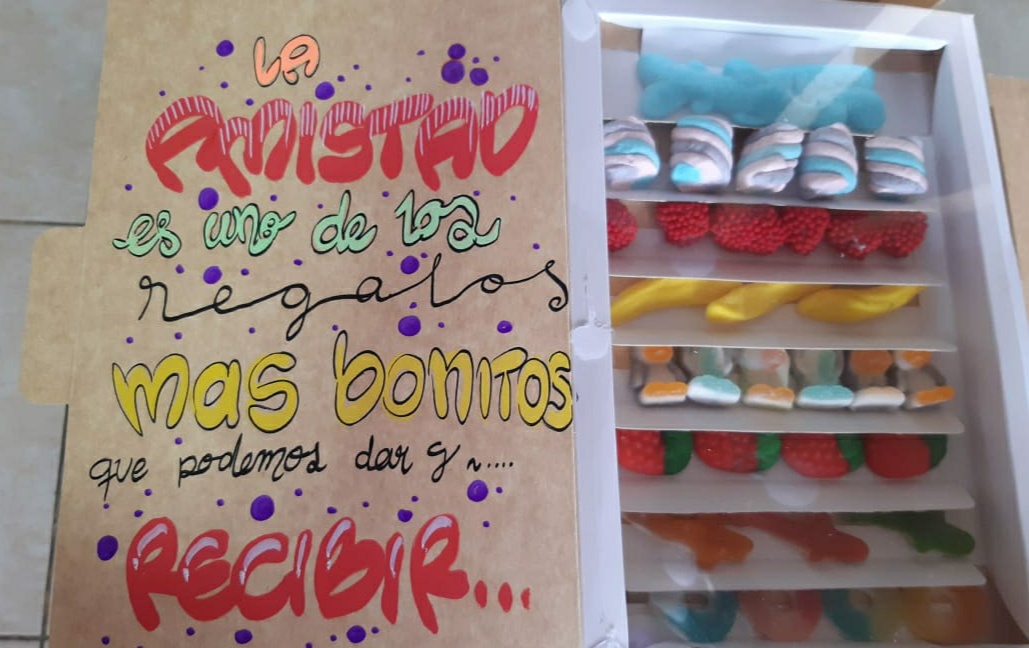 LA
AMISTAD
es uno de los
regalos
mas bonitos
que podemos dar y ....
RECIBIR...